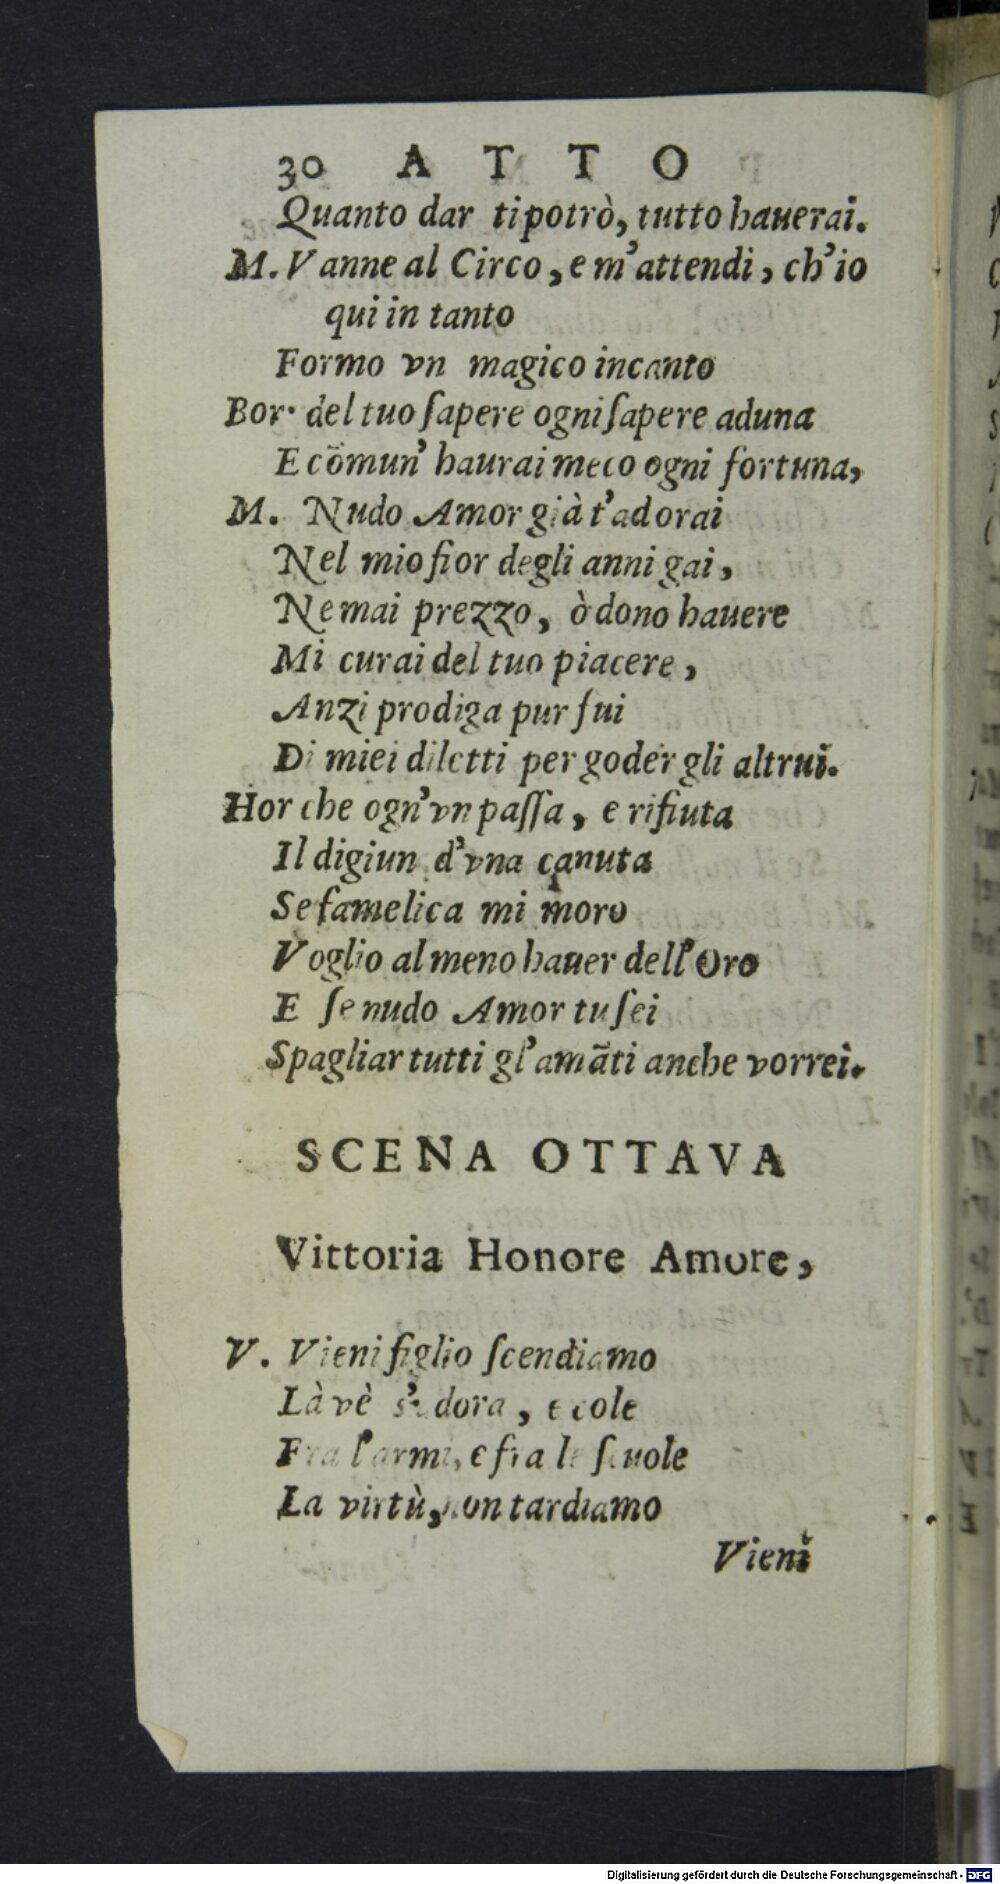 30 ATTO
Quanto dar ti potrò, tutto hauerai.
M. Vanne al Circo, e m'attendi, ch'io
qui in tanto
Formo vn magico incanto
Bor. del tuo ſapere ogni ſapere aduna
E cõmun' haurai meco ogni fortuna,
M. Nudo Amor già t'adorai
Nel mio fior degli anni gai,
Ne mai prezzo, ò dono hauere
Mi curai del tuo piacere,
Anzi prodiga pur fui
Di miei diletti per goder gli altrui.
Hor che ogn'vn paſſa, e rifiuta
Il digiun d'vna canuta
Se famelica mi moro
Voglio al meno hauer dell'Oro
E ſe nudo Amor tu ſei
Spagliar tutti gl'amãti anche vorrei.
SCENA OTTAVA
Vittoria Honore Amore,
V. Vieni figlio ſcendiamo
Là vè s'adora, e cole
Fra l'armi, e fra le ſcuole
La virtù, non tardiamo
Vieni
Digitalisierung gefördert durch die Deutsche Forschungsgemeinschaft - DFG